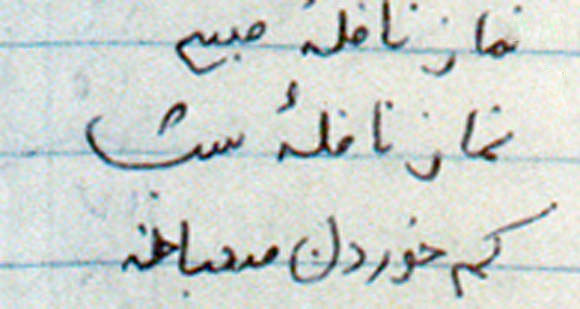 نماز نافلهٔ صبح
نماز نافلهٔ شب
کم خوردن صبحانه